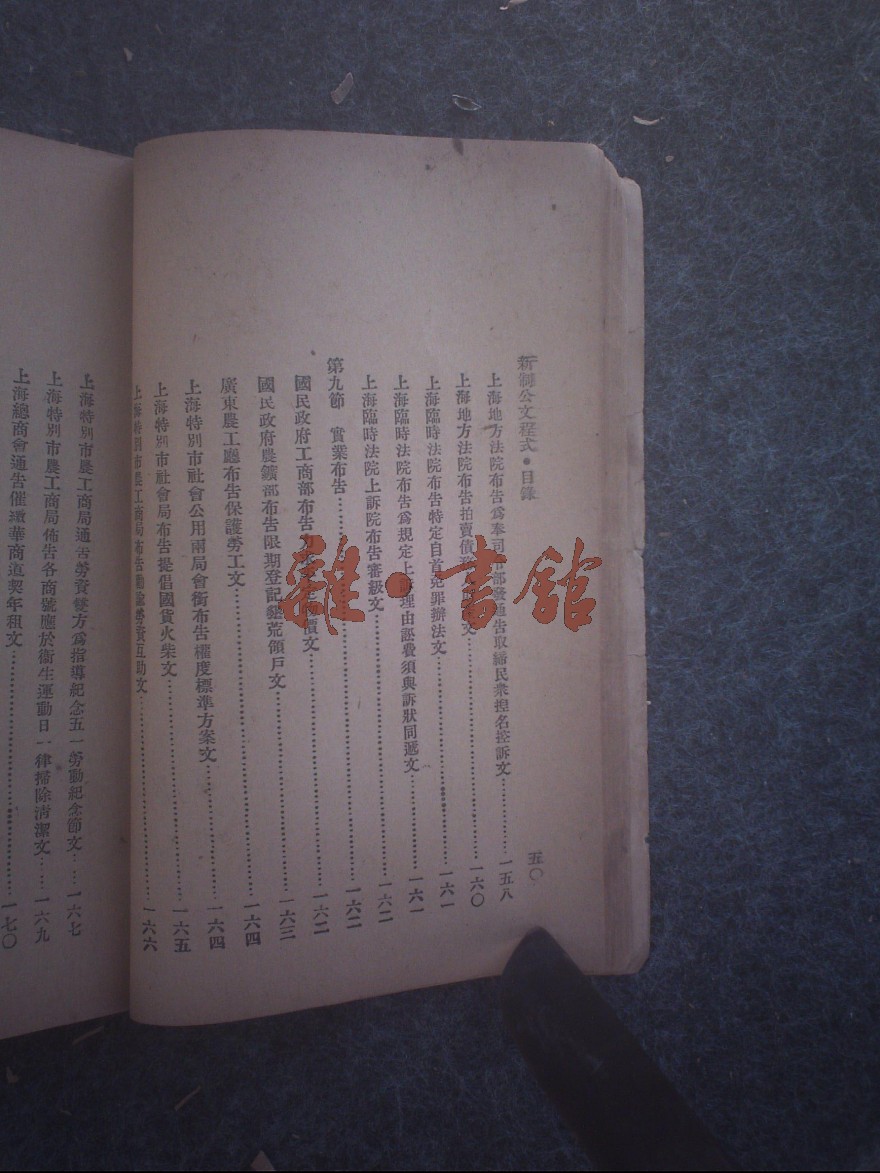 新制公文程式・目錄
五〇
上海地方法院布告為奉司 部 通告取締民衆揑名控訴文……一五八
上海地方法院布告拍賣債 文……一六〇
上海臨時法院布告特定自首免罪辦法文……一六一
上海臨時法院布告爲規定上 理由訟費須與訴狀同遞文……一六一
上海臨時法院上訴院布告審級文……一六二
第九節 實業布告……一六二
國民政府工商部布告 價文……一六二
國民政府農鑛部布告限期登記墾荒領戶文……一六三
廣東農工廳布告保護勞工文……一六四
上海特別市社會公用兩局會銜布告權度標準方案文……一六四
上海特別市社會局布告提倡國貨火柴文……一六五
上海特別市農工商局布告勸諭勞資互助文……一六六
上海特別市農工商局通告勞資雙方爲指導紀念五一勞動紀念節文……一六七
上海特別市農工商局佈告各商號應於衞生運動日一律掃除清潔文……一六九
上海總商會通告催繳華商道契年租文……一七〇
雜・書館